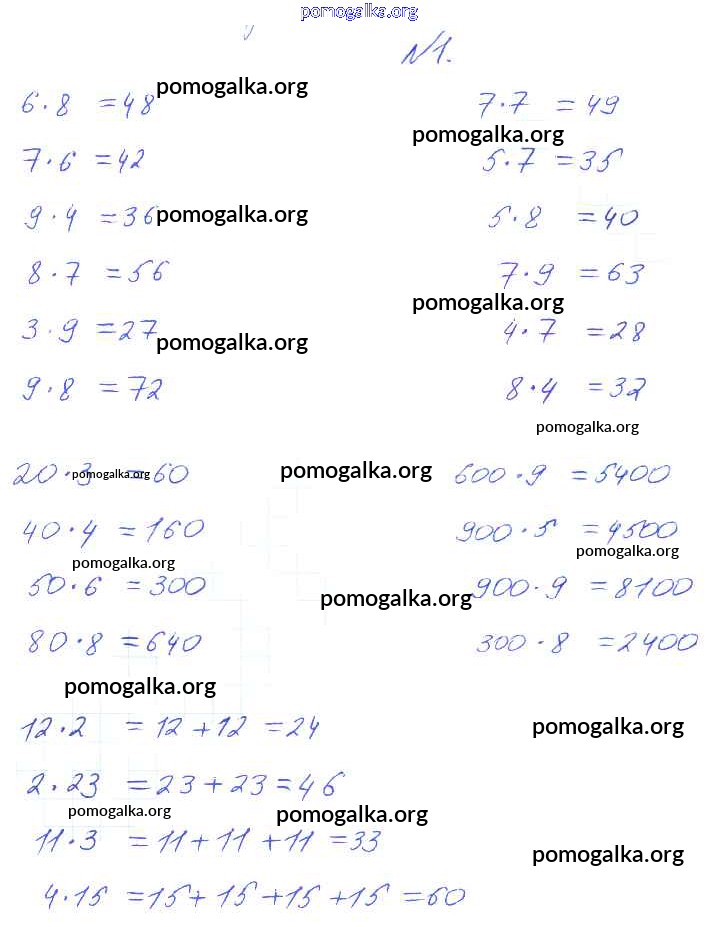 pomogalka.org
№1.
6·8 =48 pomogalka.org 7·7 =49
pomogalka.org
7·6 =42 5·7 =35
9·4 =36 pomogalka.org 5·8 =40
8·7 =56 7·9 =63
pomogalka.org
3·9 =27 pomogalka.org 4·7 =28
9·8 =72 8·4 =32
pomogalka.org
20·3 pomogalka.org =60 pomogalka.org 600·9 =5400
40·4 =160 900·5 =4500
pomogalka.org pomogalka.org
50·6 =300 pomogalka.org 900·9 =8100
80·8 =640 300·8 =2400
pomogalka.org
12·2 =12+12 =24 pomogalka.org
2·23 =23+23=46
pomogalka.org pomogalka.org
11·3 =11+11+11 =33
pomogalka.org
4·15 =15+15+15+15 =60